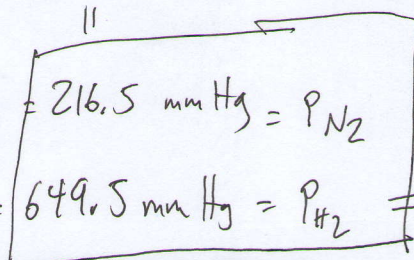 = 216.5 mm Hg = P_N2
= 649.5 mm Hg = P_H2 =